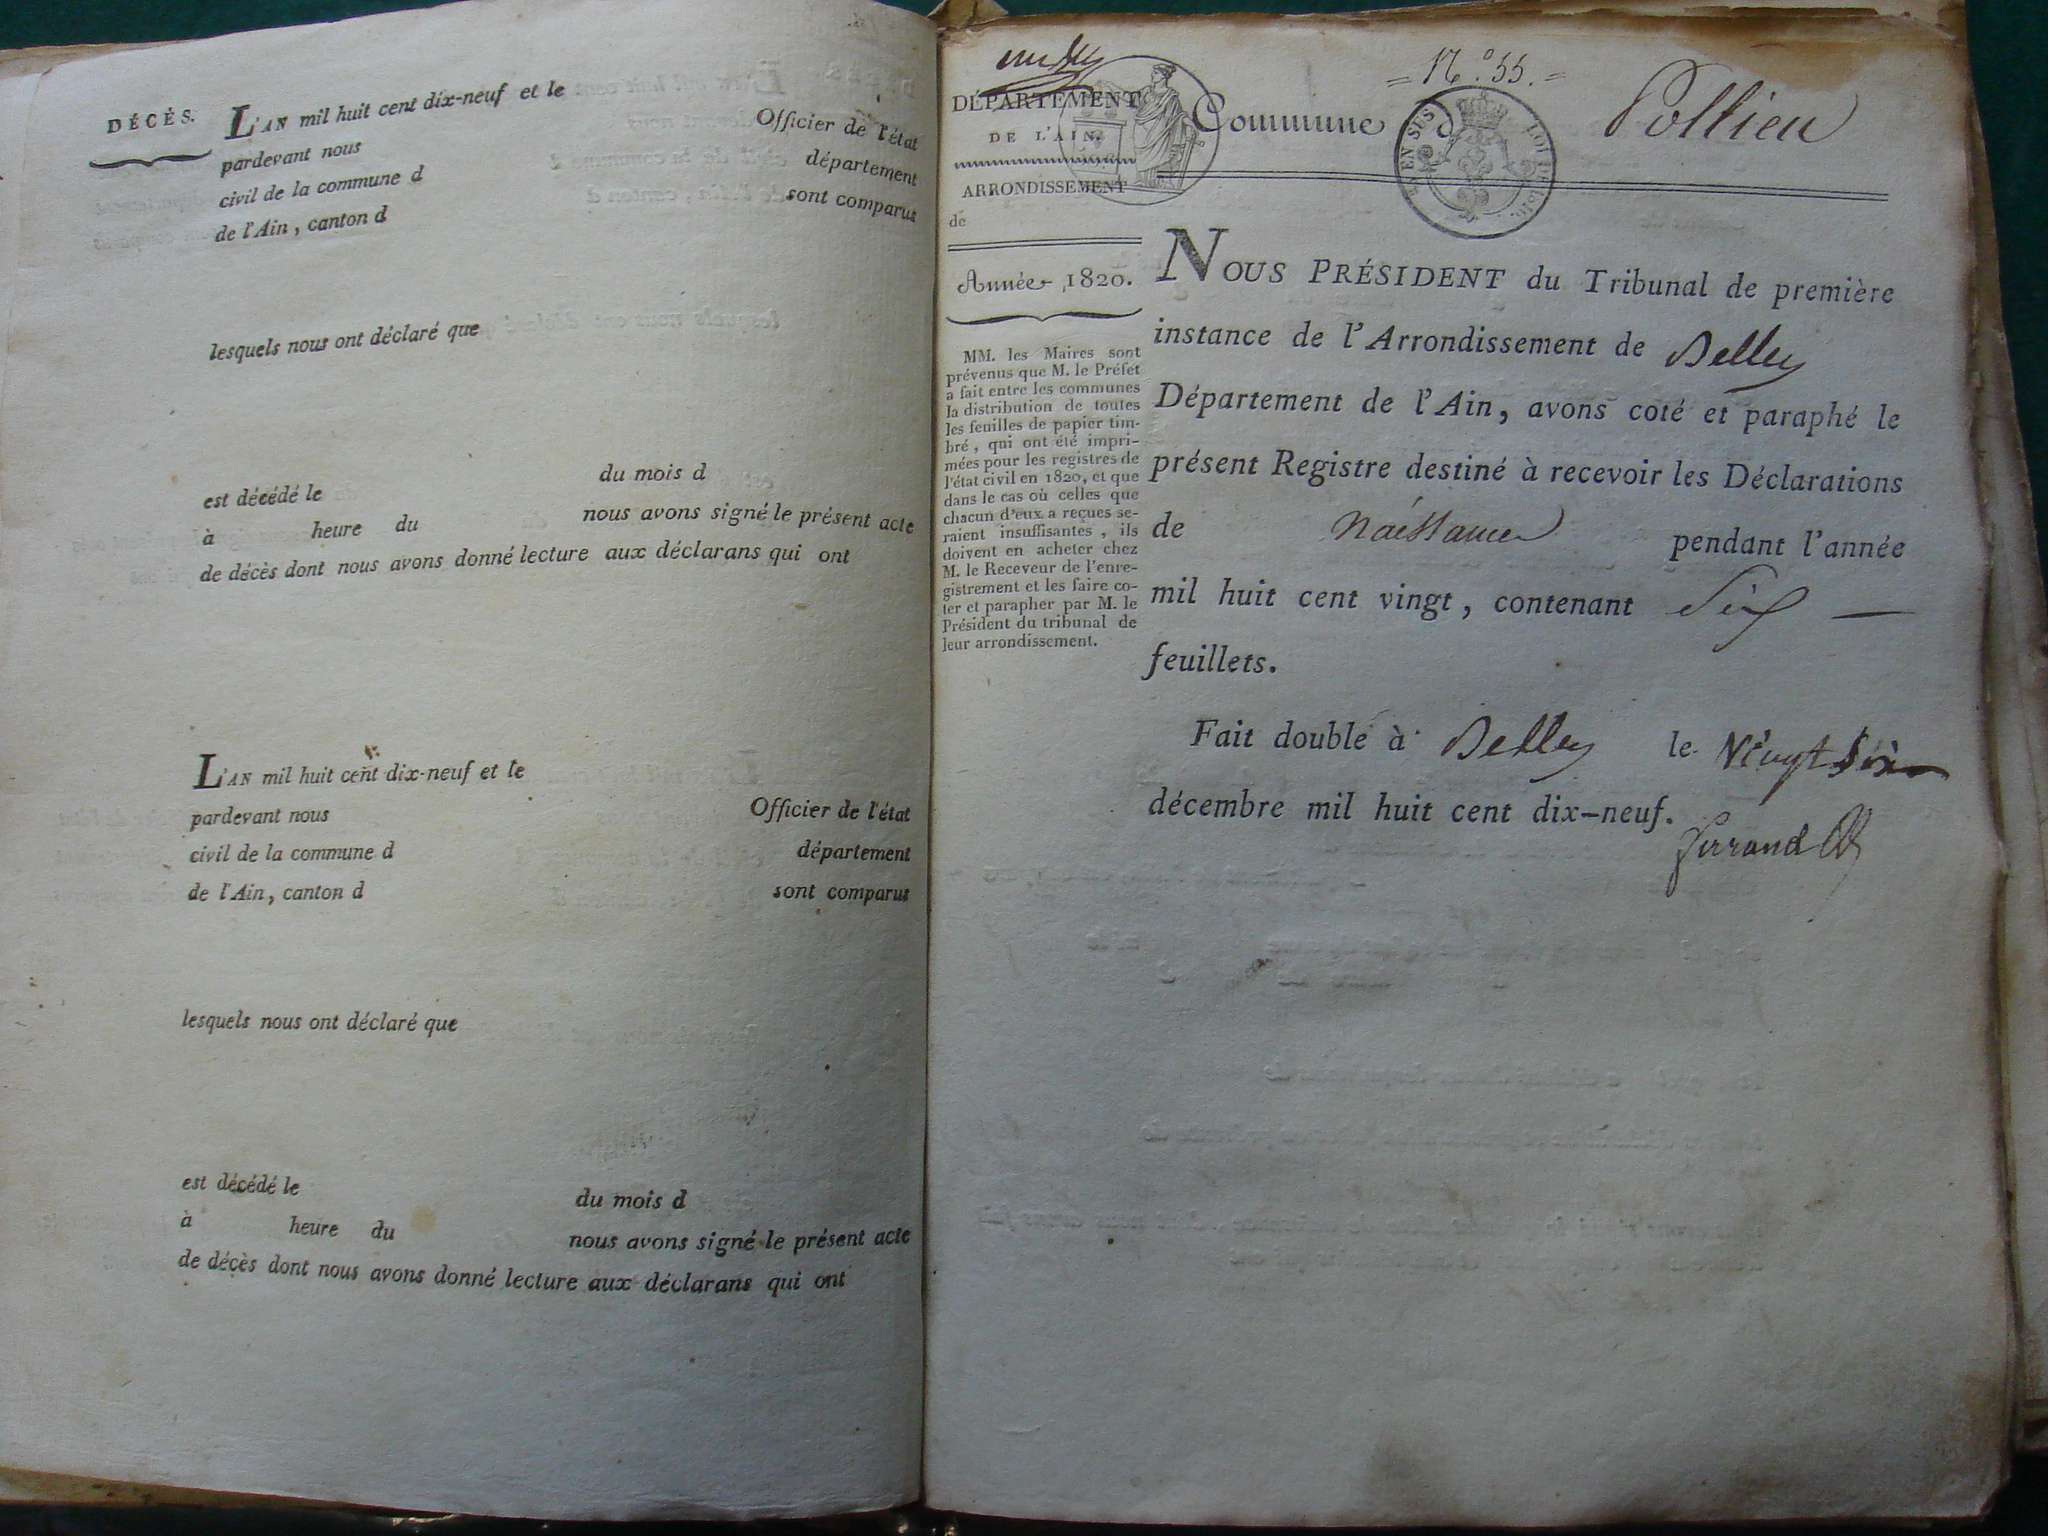 DÉCÈS.
L'AN mil huit cent dix-neuf et le
pardevant nous Officier de l'état
civil de la commune d département
de l'Ain, canton d sont comparus
lesquels nous ont déclaré que
est décédé le du mois d
à heure du nous avons signé le présent acte
de décès dont nous avons donné lecture aux déclarans qui ont
L'AN mil huit cent dix-neuf et le
pardevant nous Officier de l'état
civil de la commune d département
de l'Ain, canton d sont comparus
lesquels nous ont déclaré que
est décédé le du mois d
à heure du nous avons signé le présent acte
de décès dont nous avons donné lecture aux déclarans qui ont
= N.° 55. =
DÉPARTEMENT
DE L'AIN.
ARRONDISSEMENT
de
Commune d Pollieu
EN SUS
Année 1820.
MM. les Maires sont
prévenus que M. le Préfet
a fait entre les communes
la distribution de toutes
les feuilles de papier tim-
bré, qui ont été impri-
mées pour les registres de
l'état civil en 1820, et que
dans le cas où celles que
chacun d'eux a reçues se-
raient insuffisantes, ils
doivent en acheter chez
M. le Receveur de l'enre-
gistrement et les faire co-
ter et parapher par M. le
Président du tribunal de
leur arrondissement.
NOUS PRÉSIDENT du Tribunal de première
instance de l'Arrondissement de Belley
Département de l'Ain, avons coté et paraphé le
présent Registre destiné à recevoir les Déclarations
de Naissance pendant l'année
mil huit cent vingt, contenant Six —
feuillets.
Fait double à Belley le Vingt Six
décembre mil huit cent dix-neuf.
Ferrand